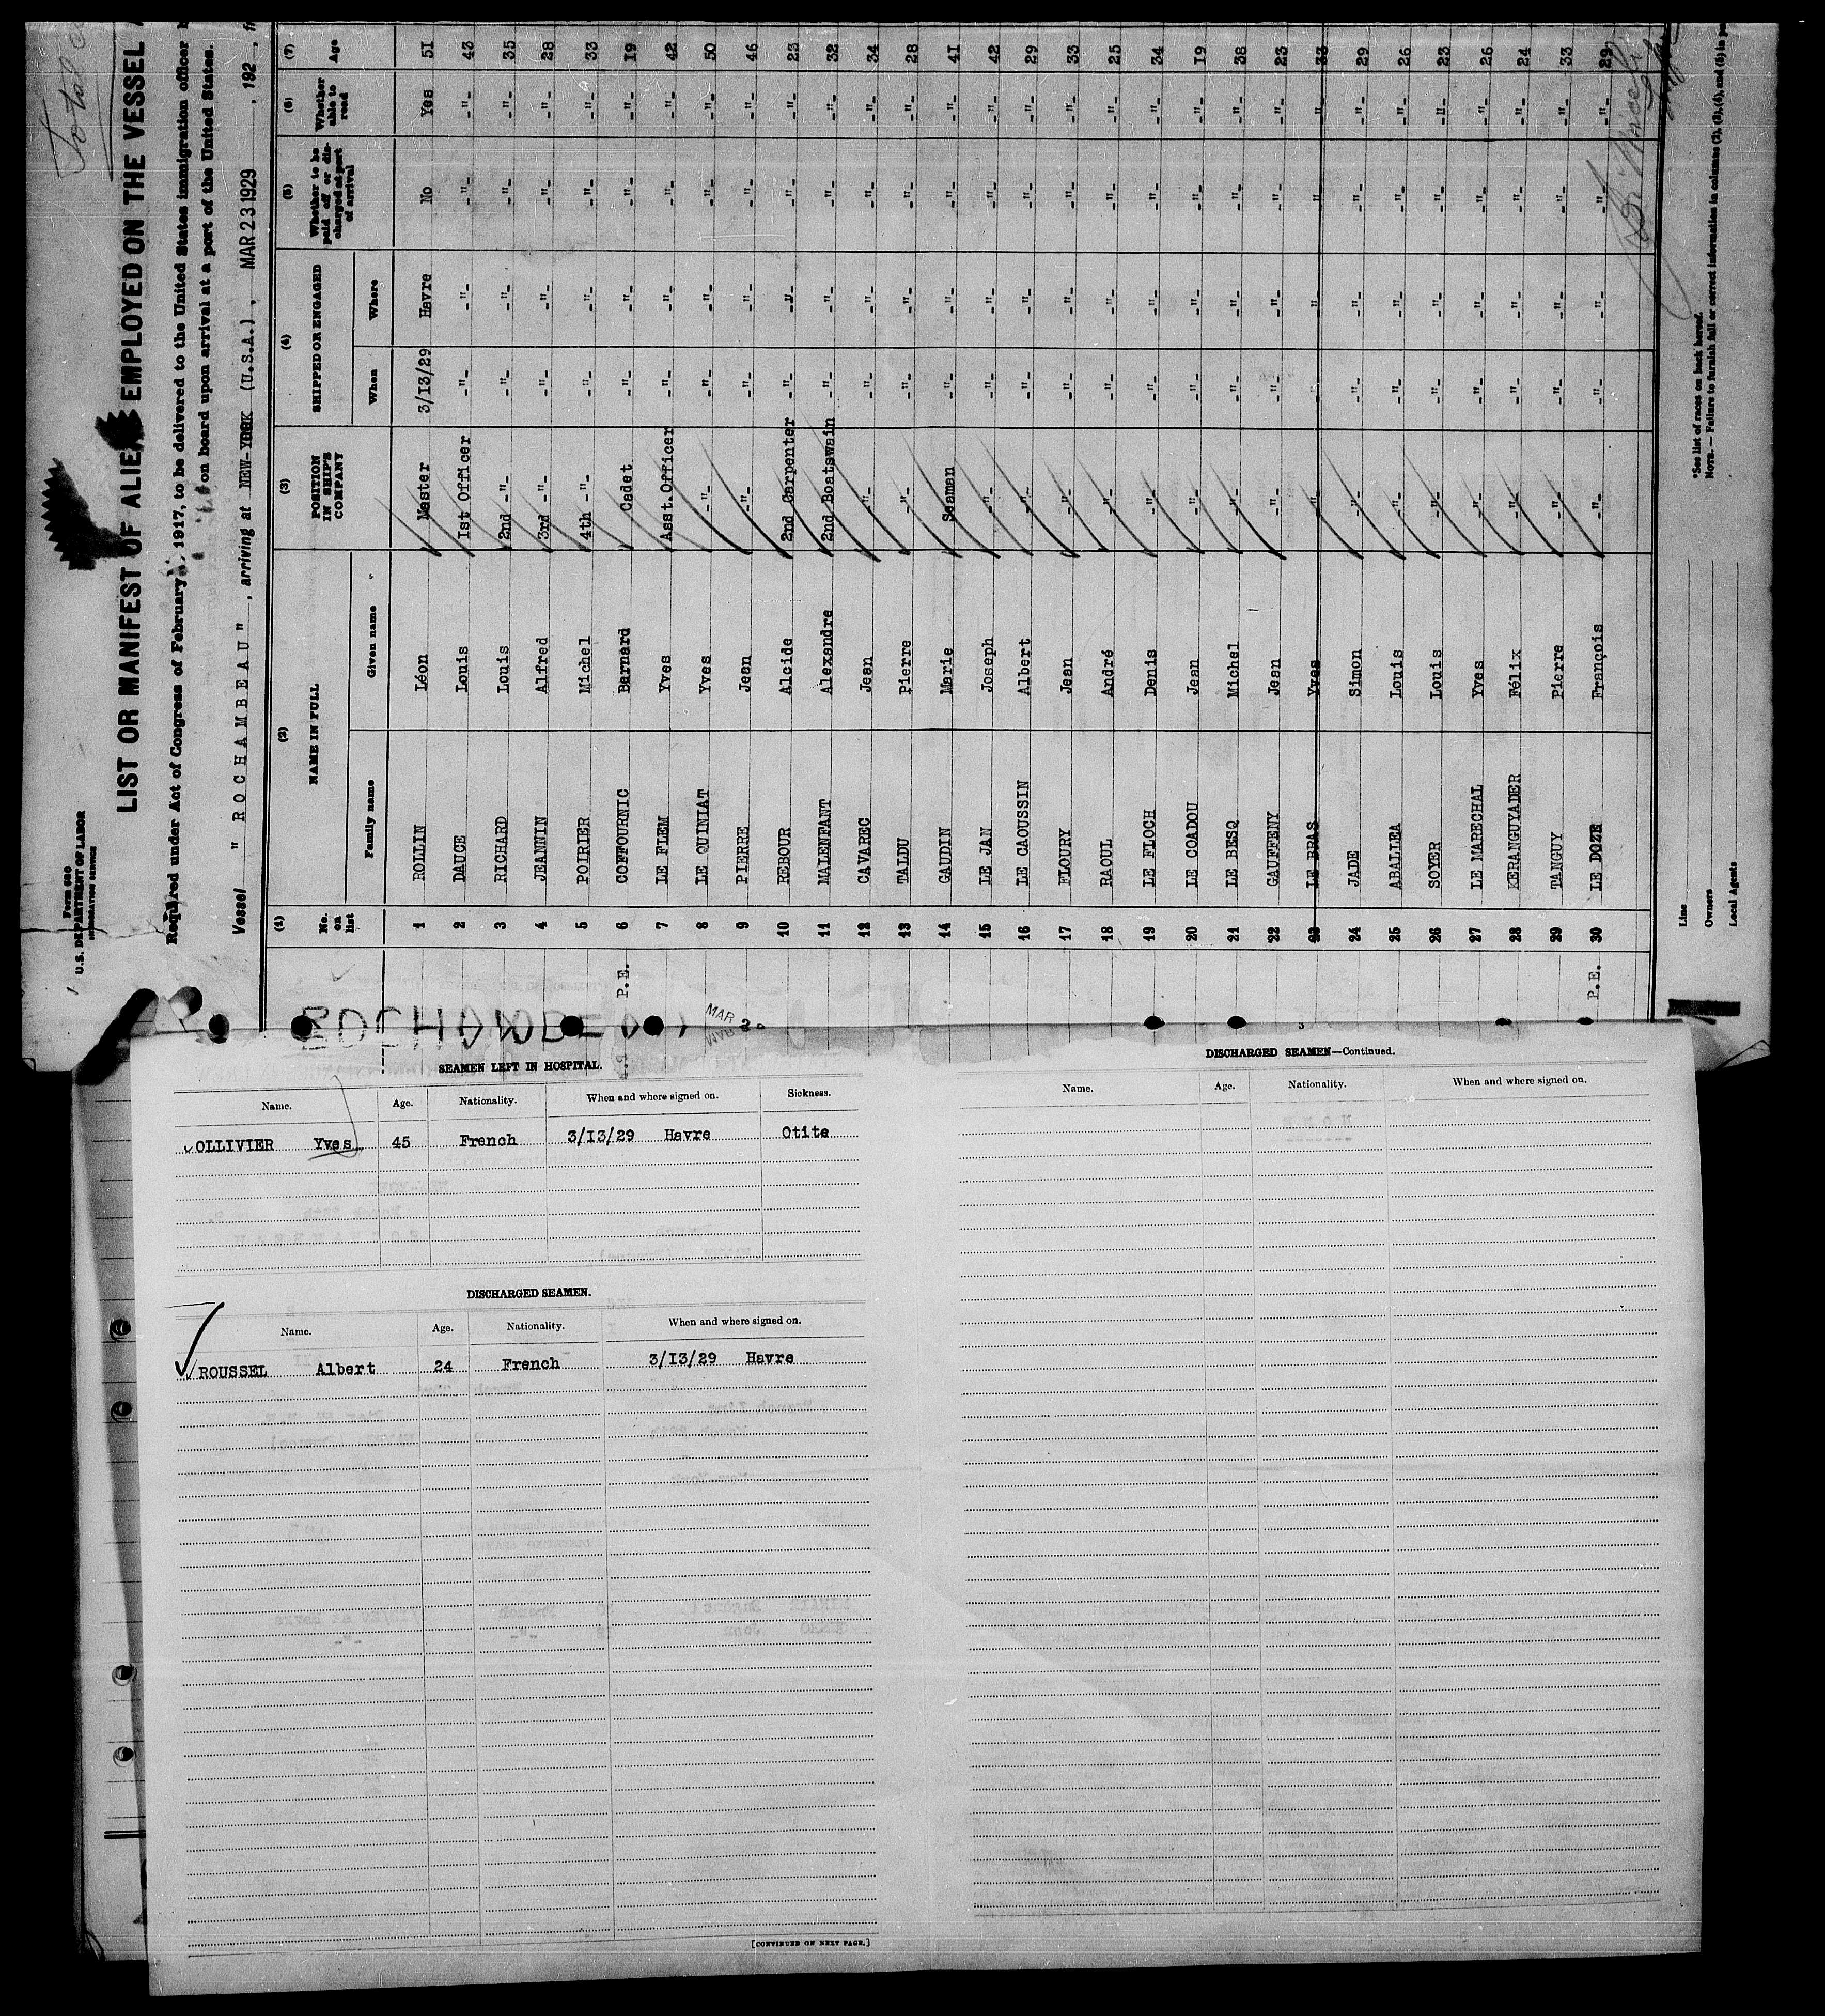 Total
Form 680
U.S. DEPARTMENT OF LABOR
IMMIGRATION SERVICE
LIST OR MANIFEST OF ALIENS EMPLOYED ON THE VESSEL
Required under Act of Congress of February 5, 1917, to be delivered to the United States immigration officer
on board upon arrival at a port of the United States.
Vessel " ROCHAMBEAU " , arriving at NEW-YORK (U.S.A.) , MAR 23 1929 , 192 ,
(1) (2) (3) (4) (5) (6) (7)
No. on list NAME IN FULL POSITION IN SHIP'S COMPANY SHIPPED OR ENGAGED Whether to be paid off or discharged at port of arrival Whether able to read Age
Family name Given name When Where
1 ROLLIN Léon Master 3/13/29 Havre No Yes 51
2 DAUCE Louis 1st Officer -"- -"- -"- -"- 43
3 RICHARD Louis 2nd -"- -"- -"- -"- -"- 35
4 JEANNIN Alfred 3rd -"- -"- -"- -"- -"- 28
5 POIRIER Michel 4th -"- -"- -"- -"- -"- 33
P.E. 6 COFFOURNIC Bernard Cadet -"- -"- -"- -"- 19
7 LE FLEM Yves Asst.Officer -"- -"- -"- -"- 42
8 LE QUINIAT Yves -"- -"- -"- -"- -"- 50
9 PIERRE Jean -"- -"- -"- -"- -"- 46
10 REBOUR Alcide 2nd Carpenter -"- -"- -"- -"- 23
11 MALENFANT Alexandre 2nd Boatswain -"- -"- -"- -"- 32
12 CAVAREC Jean -"- -"- -"- -"- -"- 34
13 TALDU Pierre -"- -"- -"- -"- -"- 28
14 GAUDIN Marie Seaman -"- -"- -"- -"- 41
15 LE JAN Joseph -"- -"- -"- -"- -"- 42
16 LE CAOUSSIN Albert -"- -"- -"- -"- -"- 29
17 FLOURY Jean -"- -"- -"- -"- -"- 33
18 RAOUL André -"- -"- -"- -"- -"- 25
19 LE FLOCH Denis -"- -"- -"- -"- -"- 34
20 LE COADOU Jean -"- -"- -"- -"- -"- 19
21 LE BESQ Michel -"- -"- -"- -"- -"- 38
22 GAUFFENY Jean -"- -"- -"- -"- -"- 23
23 LE BRAS Yves -"- -"- -"- -"- -"- 33
24 JADE Simon -"- -"- -"- -"- -"- 29
25 ABALLEA Louis -"- -"- -"- -"- -"- 26
26 SOYER Louis -"- -"- -"- -"- -"- 23
27 LE MARECHAL Yves -"- -"- -"- -"- -"- 26
28 KERANGUYADER Félix -"- -"- -"- -"- -"- 24
29 TANGUY Pierre -"- -"- -"- -"- -"- 33
P.E. 30 LE DOZE François -"- -"- -"- -"- -"- 29
Line
Owners
Local Agents
*See list of races on back hereof.
NOTE.—Failure to furnish full or correct information in columns (2), (3), (4), and (5) is
ROCHAMBEAU
MAR
SEAMEN LEFT IN HOSPITAL.
Name. Age. Nationality. When and where signed on. Sickness.
OLLIVIER Yves 45 French 3/13/29 Havre Otite
DISCHARGED SEAMEN.
Name. Age. Nationality. When and where signed on.
ROUSSEL Albert 24 French 3/13/29 Havre
[CONTINUED ON NEXT PAGE.]
DISCHARGED SEAMEN—Continued.
Name. Age. Nationality. When and where signed on.